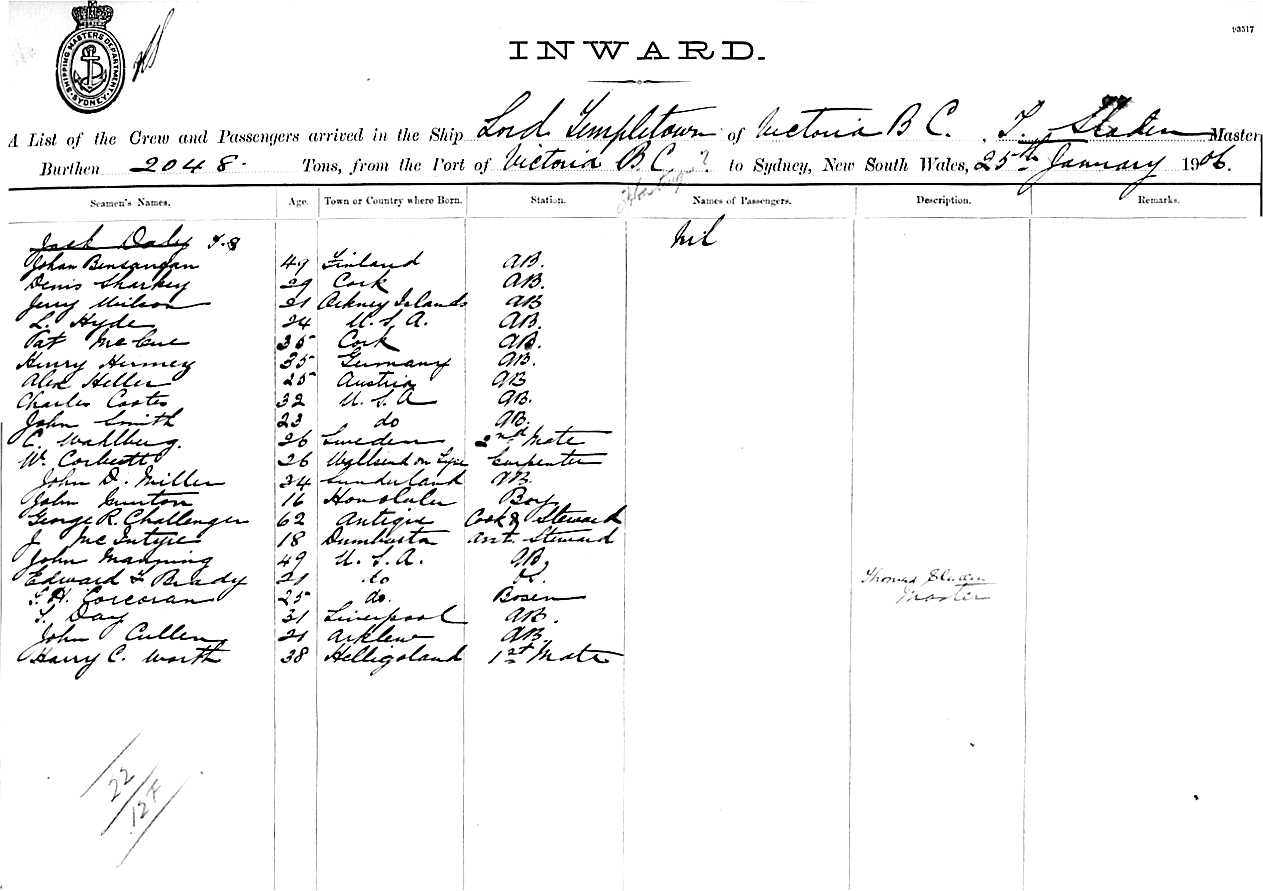 93517
SHIPPING MASTERS DEPARTMENT SYDNEY
INWARD.
A List of the Crew and Passengers arrived in the Ship Lord Templetown of Victoria B C. T. Sladen Master
Burthen 2048 Tons, from the Port of Victoria B.C. ? to Sydney, New South Wales, 25th January 1906.
Seamen's Names. Age. Town or Country where Born. Station. Names of Passengers. Description. Remarks.
Jack Daly T.S Nil
Johan 49 Finland AB.
Denis Sharkey 29 Cork AB.
Jerry Wilson 21 Orkney Islands AB
L. Hyde 24 U.S.A. AB.
Pat McCue 35 Cork AB.
Henry Hermey 35 Germany AB.
Alex Heller 25 Austria AB
Charles Coates 32 U.S.A AB.
John Smith 23 do AB.
C. Wahlburg. 26 Sweden 2nd Mate
W. Corbett 26 Wallsend on Tyne Carpenter
John D. Miller 24 Sunderland AB.
John Gunton 16 Honolulu Boy
George R. Challenger 62 Antigua Cook & Steward
J McIntyre 18 Dumbarton Asst. Steward
John Manning 49 U.S.A. AB,
Edward F Brady 21 do Thomas Sladen
F.H. Corcoran 25 do. Bosen Master
T. Day 31 Liverpool AB.
John Cullen 21 Arklow AB
Harry C. Worth 38 Helligoland 1st Mate
22
12